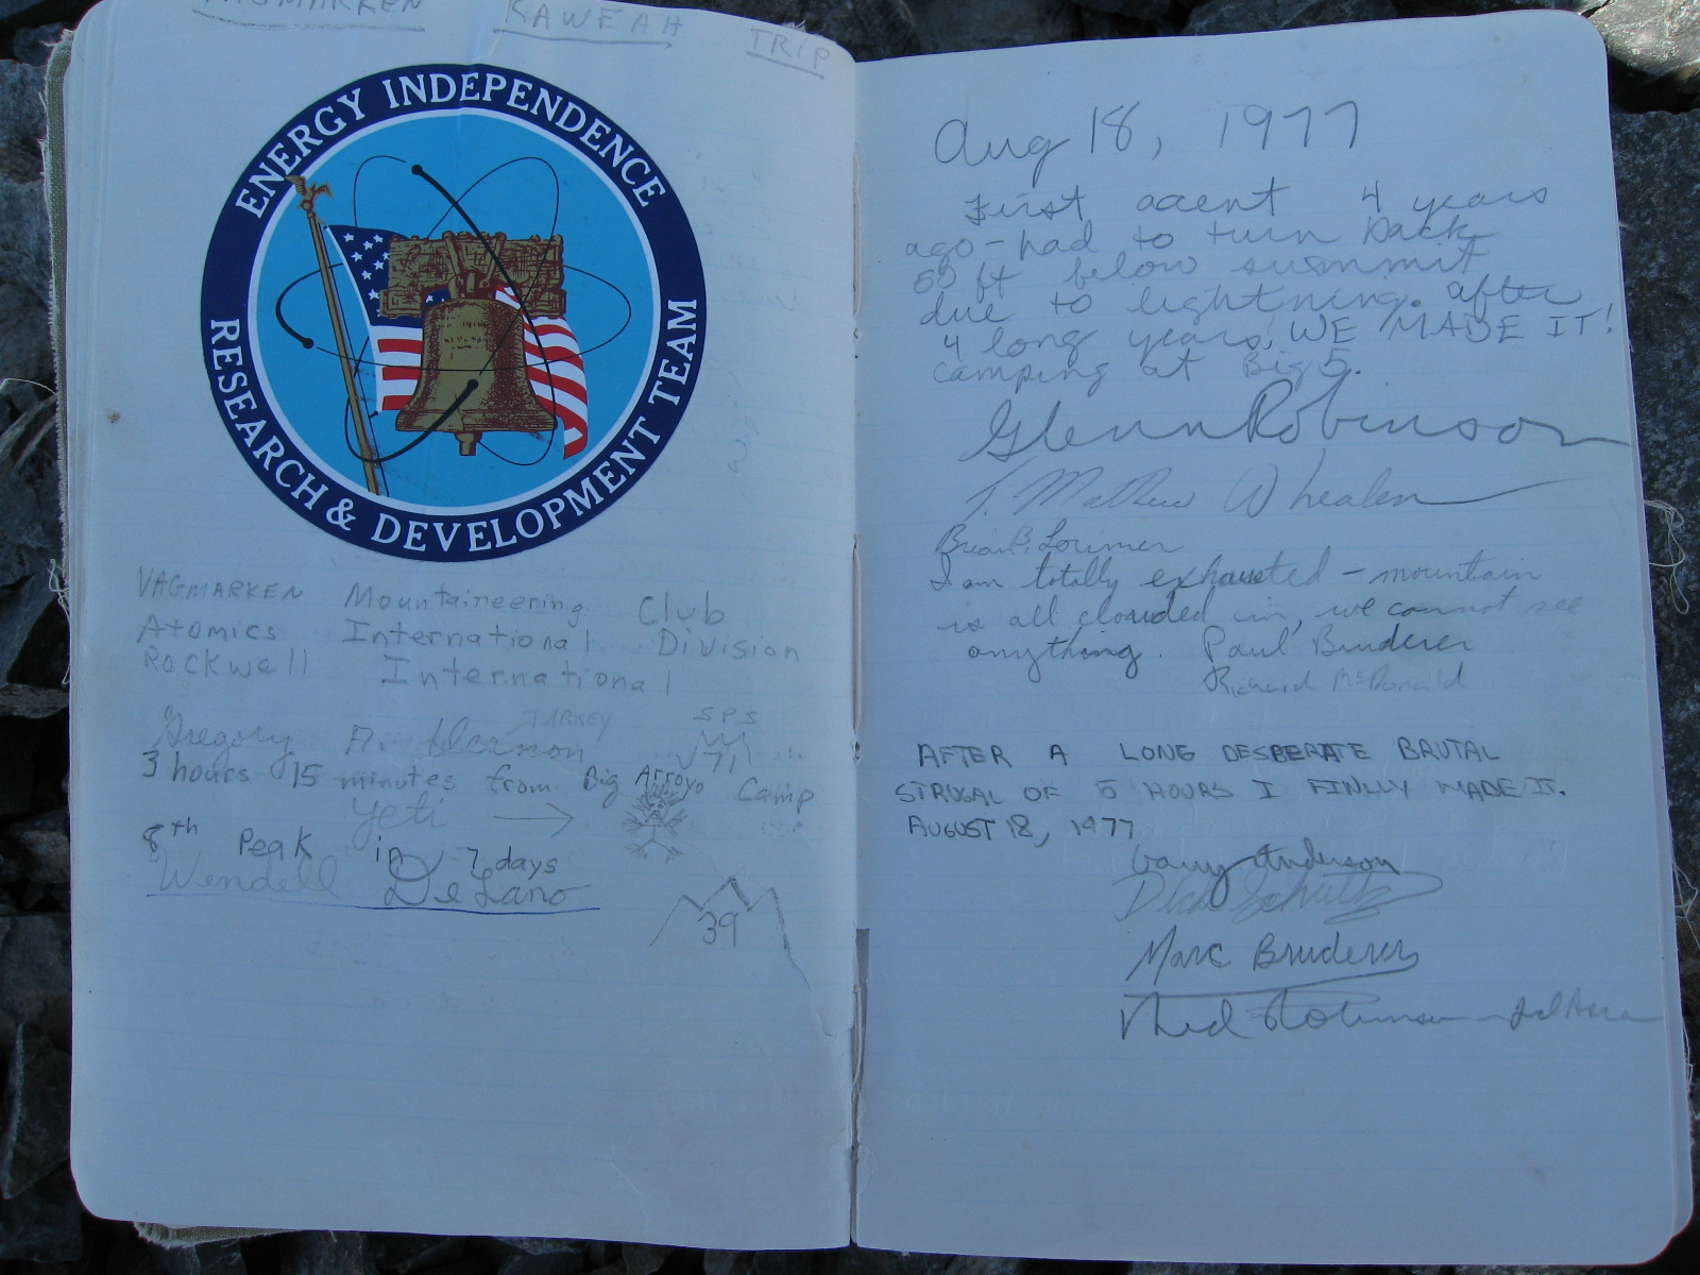 VAGMARKEN KAWEAH TRIP
ENERGY INDEPENDENCE
RESEARCH & DEVELOPMENT TEAM
VAGMARKEN Mountaineering Club
Atomics International Division
Rockwell International
TURKEY SPS
Gregory A.
71
3 hours 15 minutes from Big Arroyo Camp
Yeti
8th Peak in 7 days
Wendell DeLano
39
Aug 18, 1977
First acent 4 years
ago - had to turn back
50 ft below summit
due to lightning. after
4 long years, WE MADE IT!
camping at Big 5.
Glenn Robinson
T. Mathew Whealen
Brian B. Lorimer
I am totally exhausted - mountain
is all clouded in, we cannot see
anything. Paul Bruderer
Richard McDonald
AFTER A LONG DESBERATE BRUTAL
STRUGAL OF 5 HOURS I FINLLY MADE IT.
AUGUST 18, 1977
Gary Anderson
Dick Schultz
Marc Bruderer
Robinson